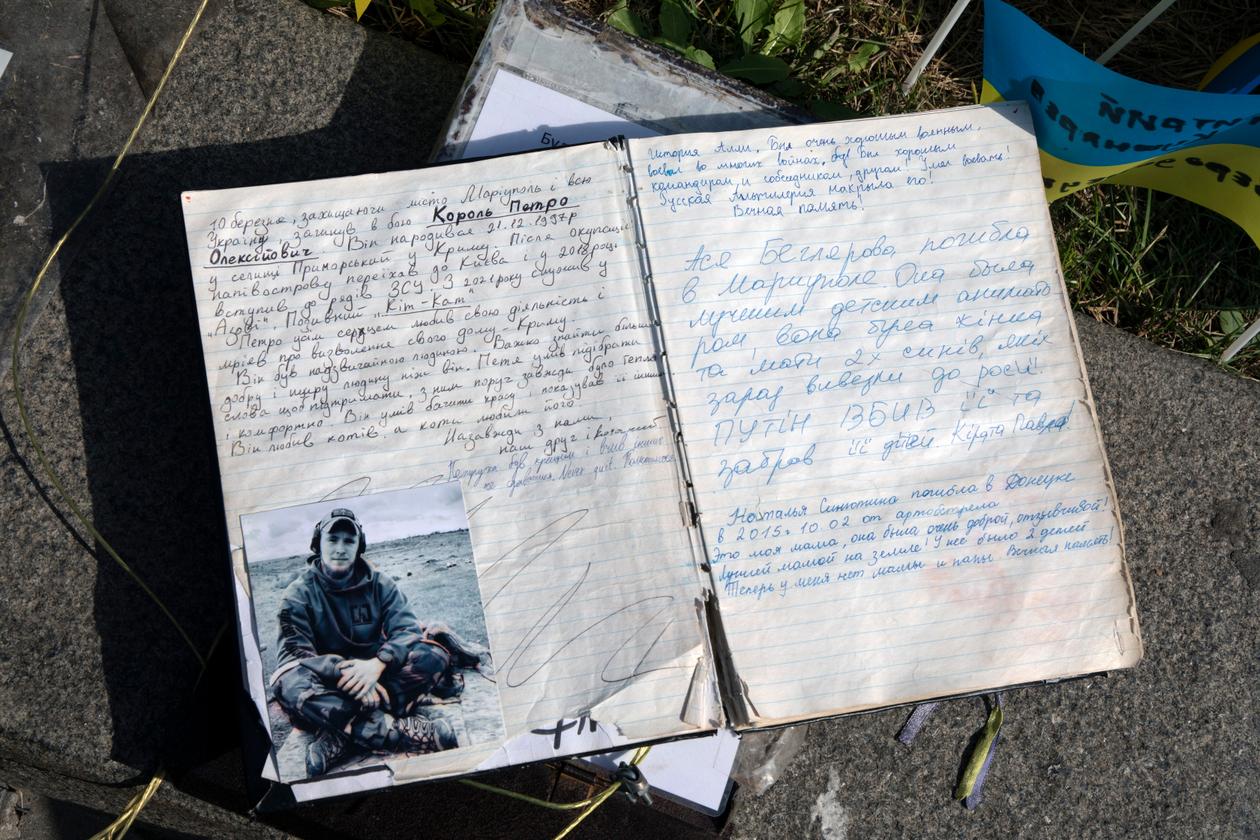 10 березня, захищаючи місто Маріуполь і всю
Україну загинув в бою Король Петро
Олексійович Він народився 21.12.1997р
у селищі Приморський у Криму. Після окупації
півострову переїхав до Києва і у 2018 році
вступив до рядів ЗСУ. З 2021 року служив у
"Азові". Позивний "Кіт-Кат"
Петро усім серцем любив свою діяльність і
мріяв про визволення свого дому - Криму.
Він був надзвичайною людиною. Важко знайти більш
добру і щиру людину ніж він. Петя умів підібрати
слова щоб підтримати. З ним поруч завжди було тепло
і комфортно. Він умів бачити красу і показував її іншим
Він любив котів, а коти любили його.
Назавжди з нами,
наш друг і коханий
Петруча був кращим і вчив інших
не здаватися. Never quit.
История Алли. Был очень хорошим военным,
воевал во многих войнах. Был хорошим
командиром, и собеседником, другом! Умел воевать!
Русская Артилерия накрыла его!
Вечная память!
Ася Беглярова погибла
в Мариуполе. Она была
лучшим детским анимато
ром, вона була жінка
та мати 2х синів, яких
зараз вивезли до росії!
ПУТІН ВБИВ її та
забрав її дітей.
Наталья Синютина погибла в Донецке
в 2015г. 10.02 от артобстрела
Это моя мама, она была очень доброй, отзывчивой!
Лучшей мамой на земле! У неё было 2 детей
Теперь у меня нет мамы и папы Вечная память!